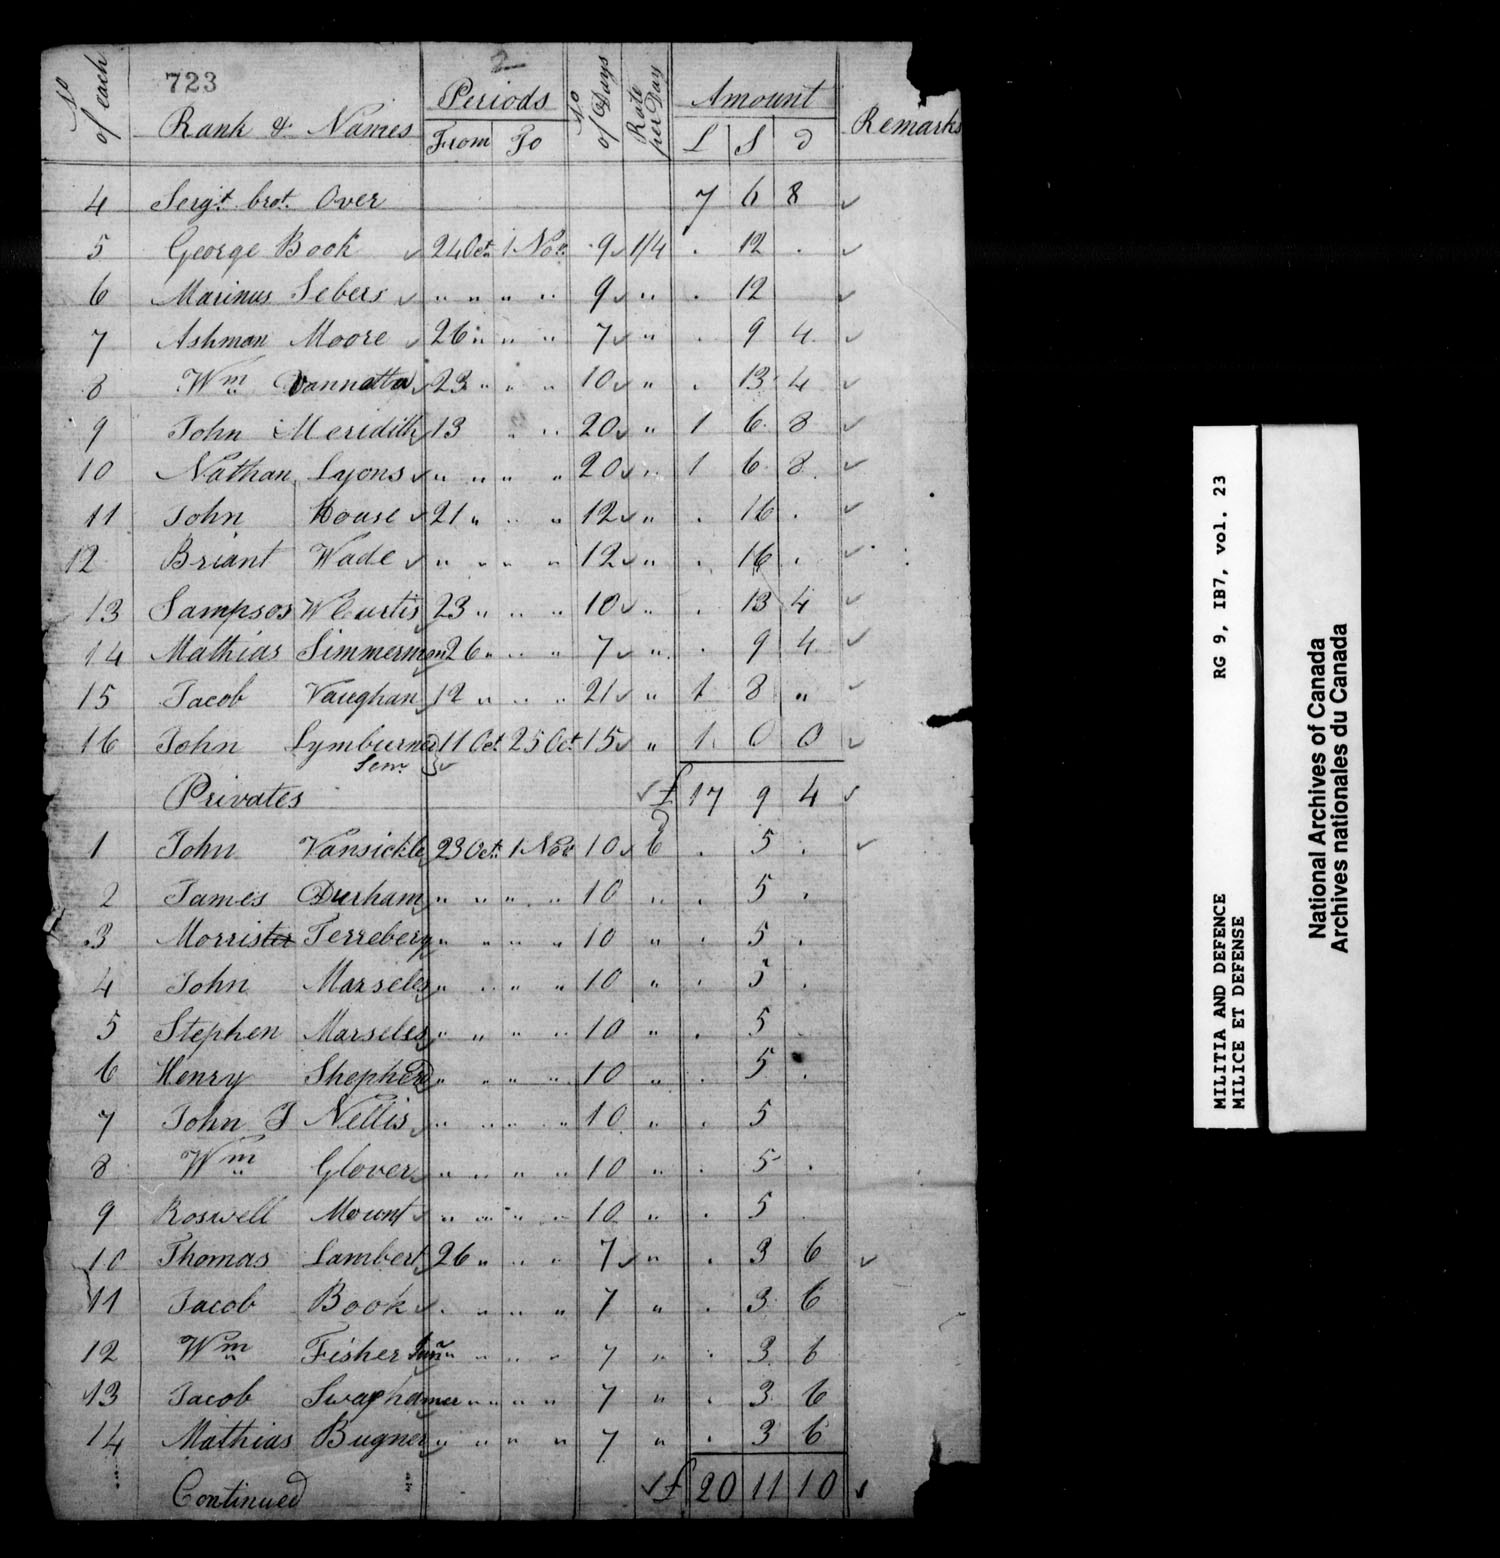 2
723
No of each Rank & Names Periods No of Days Rate per Day Amount Remarks
From To L S d
4 Sergt. brot. Over 7 6 8 ✓
5 George Book ✓ 24 Oct. 1 Nov. 9 ✓ 1/4 . 12 . ✓
6 Marinus Sebers ✓ " " " " 9 ✓ " . 12 ✓
7 Ashman Moore ✓ 26 " " " 7 ✓ " . 9 4 ✓
8 Wm Vannatta ✓ 23 " " " 10 ✓ " . 13 4 ✓
9 John Meridith ✓ 13 " " 20 ✓ " 1 6 8 ✓
10 Nathan Lyons ✓ " " " " 20 ✓ " 1 6 8 ✓
11 John House ✓ 21 " " " 12 ✓ " . 16 . ✓
12 Briant Wade ✓ " " " " 12 ✓ " . 16 . ✓
13 Sampsos W Curtis ✓ 23 " " " 10 ✓ " . 13 4 ✓
14 Mathias Simmerman ✓ 26 " " " 7 ✓ " . 9 4 ✓
15 Jacob Vaughan ✓ 12 " " " 21 ✓ " 1 8 " ✓
16 John Lymburner 11 Oct 25 Oct 15 ✓ " 1 0 0 ✓
Senr. } ✓
Privates ✓ £ 17 9 4 ✓
1 John Vansickle ✓ 23 Oct. 1 Nov 10 ✓ 6d . 5 . ✓
2 James Durham ✓ " " " " 10 " . 5 .
3 Morris Terreberg ✓ " " " " 10 " . 5 .
4 John Marseles ✓ " " " " 10 " . 5 .
5 Stephen Marseles ✓ " " " " 10 " . 5
6 Henry Shepherd ✓ " " " " 10 " . 5 .
7 John J Nellis ✓ " " " " 10 " . 5
8 Wm Glover ✓ " " " " 10 " . 5 .
9 Roswell Mount ✓ " " " " 10 " . 5 .
10 Thomas Lambert ✓ 26 " " " 7 ✓ " . 3 6 ✓
11 Jacob Book ✓ " " " " 7 " . 3 6
12 Wm Fisher Junr " " " " 7 " . 3 6
13 Jacob Swaphamer " " " " 7 " . 3 6
14 Mathias Bugner ✓ " " " " 7 " . 3 6
Continued ✓ £ 20 11 10 ✓
MILITIA AND DEFENCE RG 9, IB7, vol. 23
MILICE ET DEFENSE
National Archives of Canada
Archives nationales du Canada